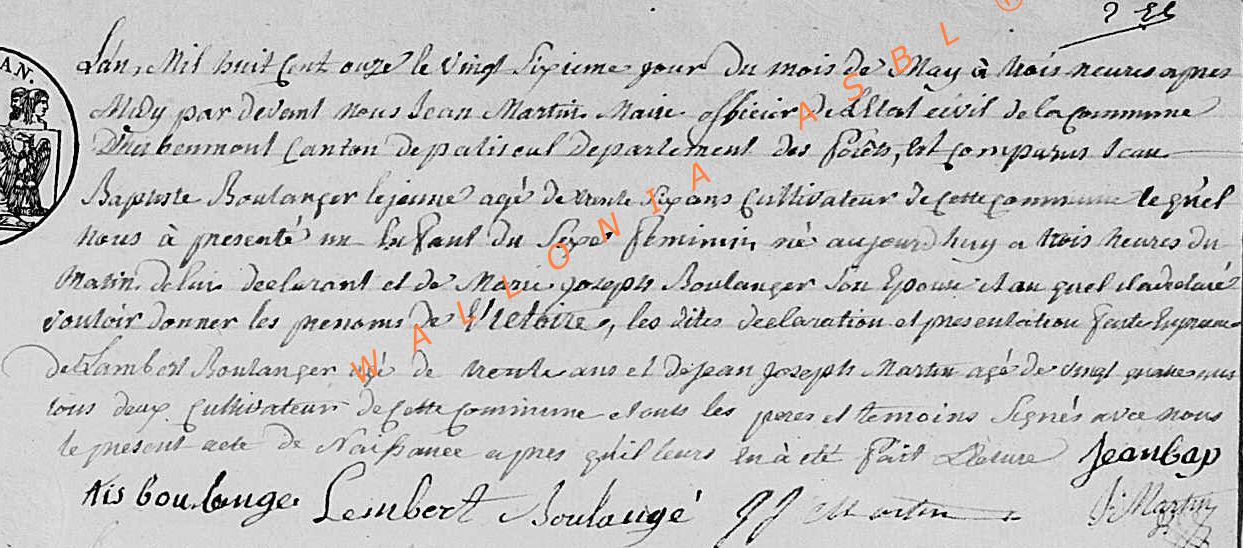 L'an Mil huit Cent onze le vingt Sixieme jour du mois de May à trois heures apres
Midy par devant nous Jean Martin Maire officier de l'Etat civil de la Commune
D'herbeumont Canton de paliseul departement des Forêts, est comparus Jean
Baptiste Boulanger le jeune agé de trente Six ans Cultivateur de Cette Commune lequel
nous à presenté un Enfant du Sexe feminin, né aujourdhuy a trois heures du
Matin de lui declarant et de Marie joseph Boulanger Son Epouse et au quel il a declaré
vouloir donner les prenoms de Victoire, les dites declaration et presentation faite En presence
de Lambert Boulanger agé de trente ans et de jean joseph Martin agé de vingt quatre ans
tous deux Cultivateur de Cette Commune et onts les peres et temoins Signés avec nous
le present acte de Naissance apres qu'il leurs en à eté fait Lecture Jean bap
tis boulange Lembert Boulangé JJ Martin J Martin
AN.
WALLONIA ASBL ®